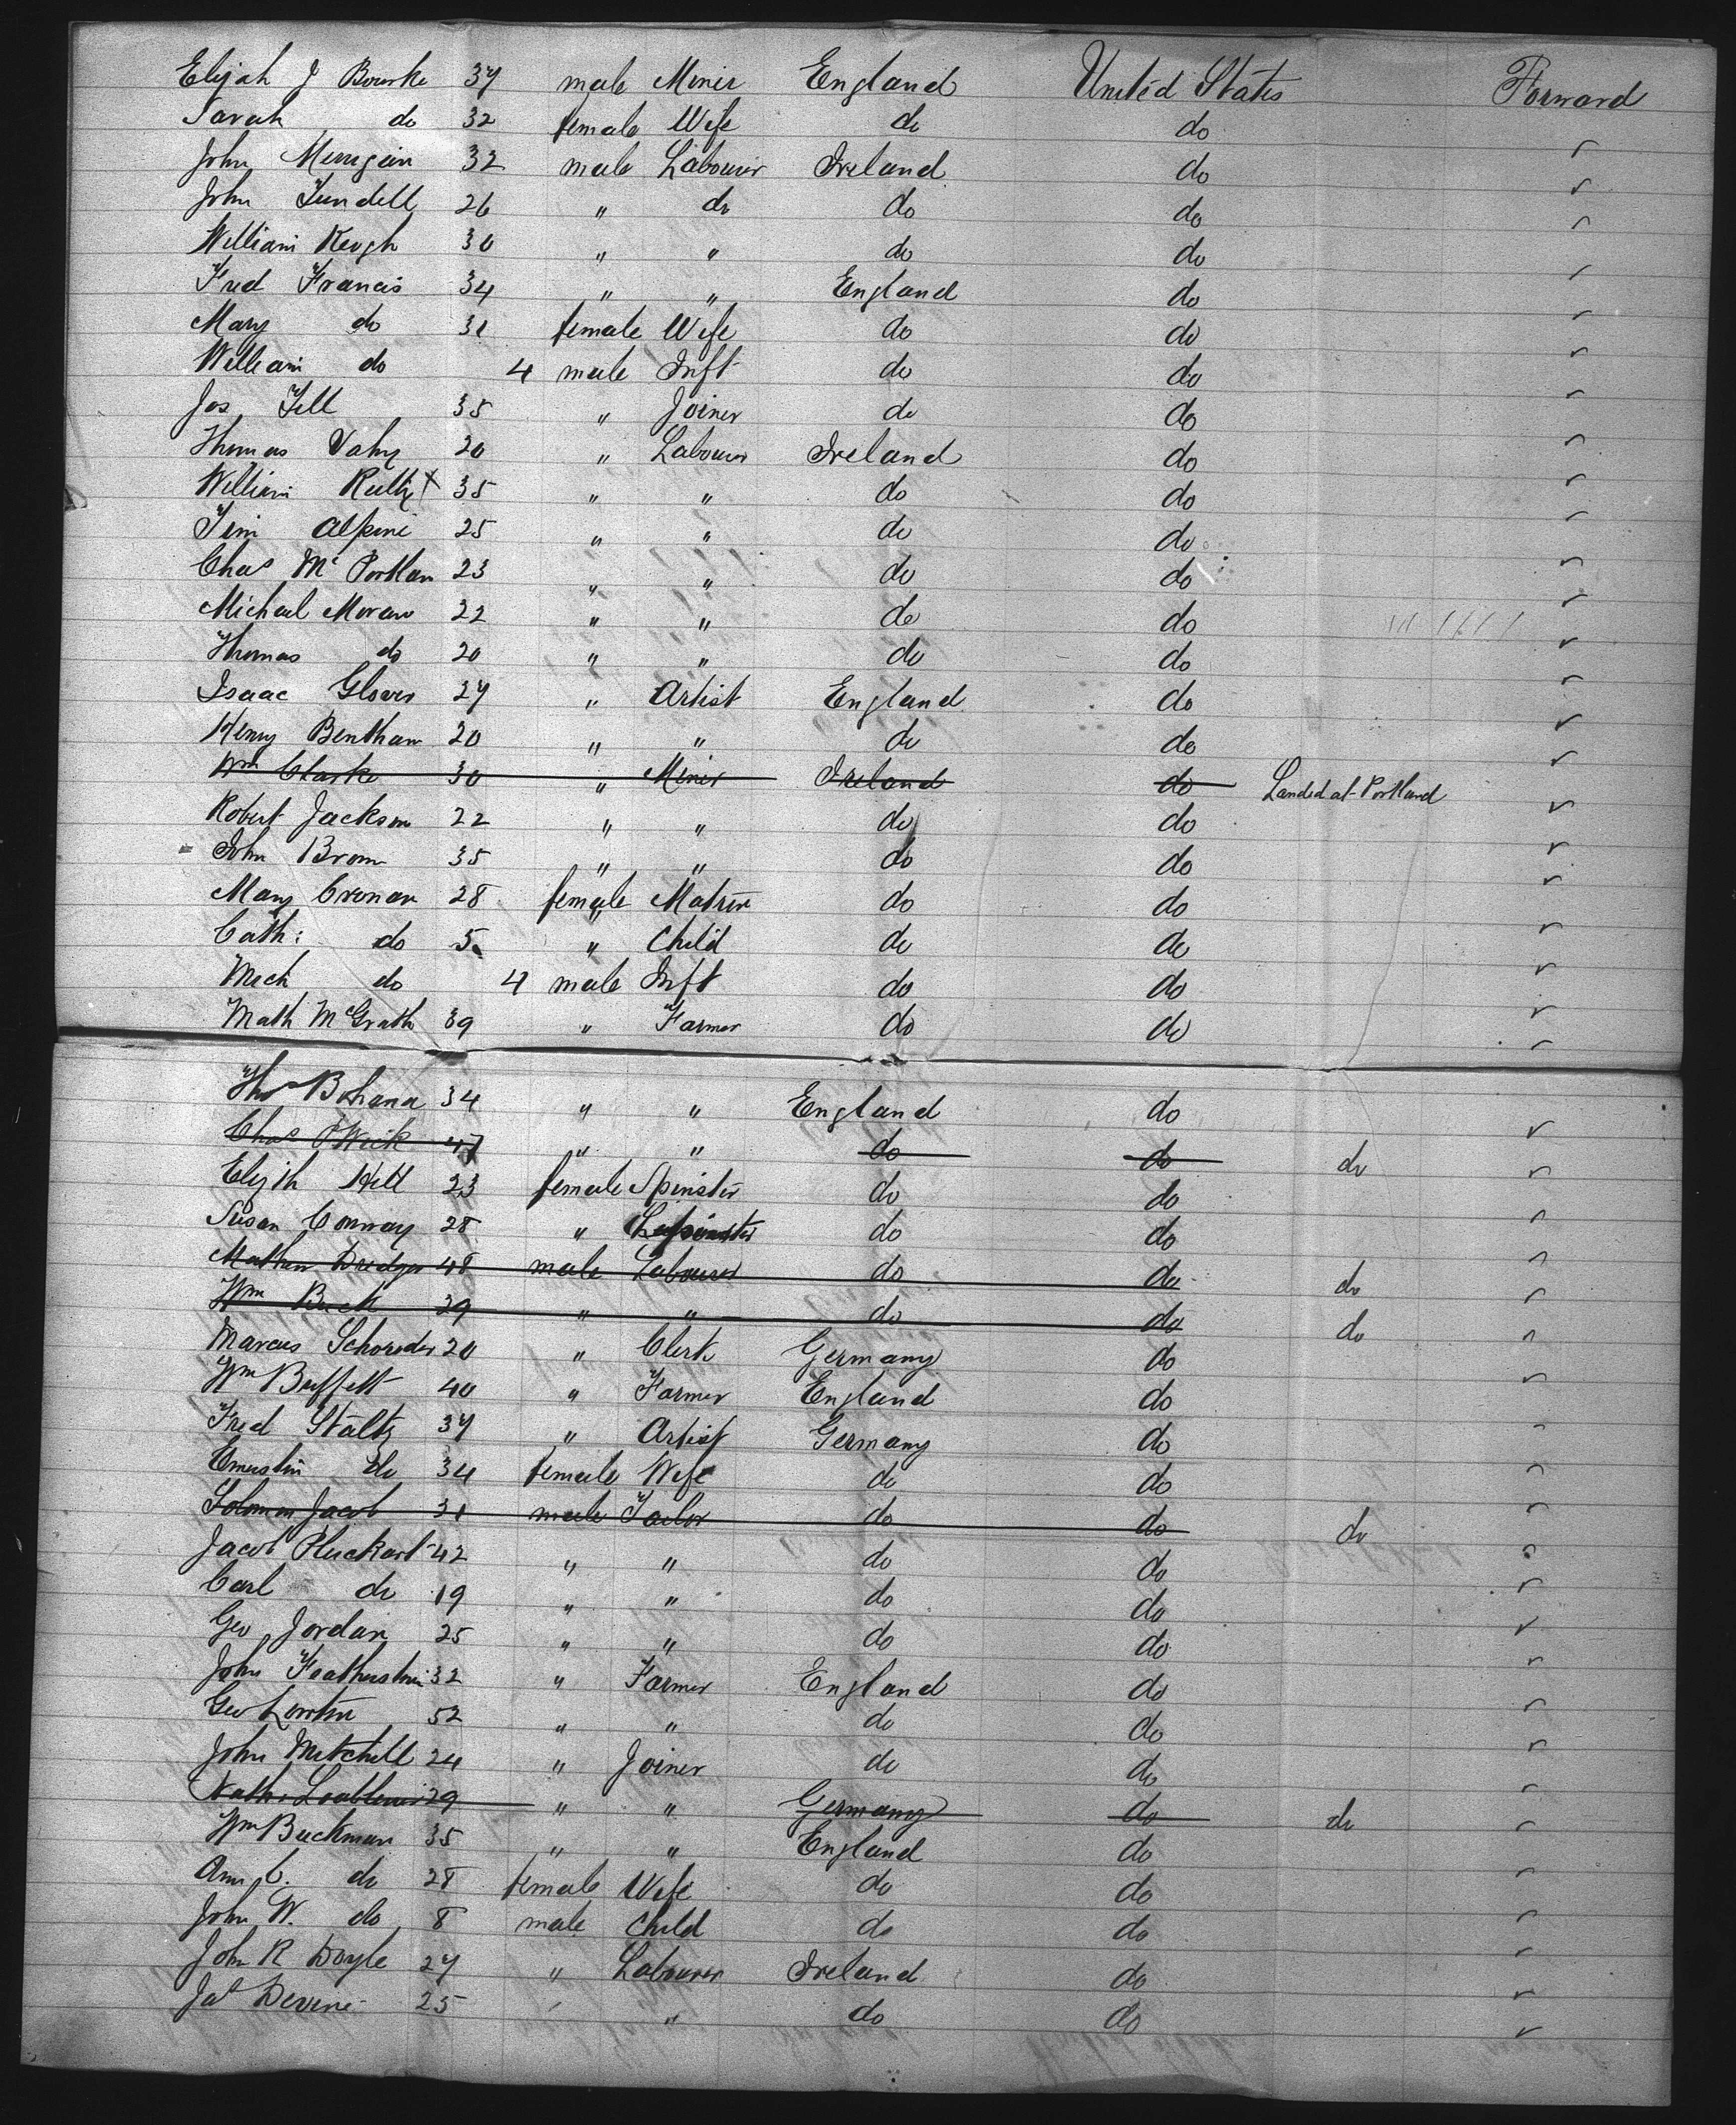 Elijah J Bourke 37 male Miner England United States Forward
Sarah do 32 female Wife do do ✓
John Merrigan 32 male Labourer Ireland do ✓
John Tundell 26 " do do do ✓
William Keogh 30 " " do do ✓
Fred Francis 34 " " England do ✓
Mary do 31 female Wife do do ✓
William do 4 male Inft do do ✓
Jos Tell 35 " Joiner do do ✓
Thomas Vahy 20 " Labourer Ireland do ✓
William X 35 " " do do ✓
Jim Alpine 25 " " do do ✓
Chas Mc Portlan 23 " " do do ✓
Michael Moran 22 " " do do ✓
Thomas do 20 " " do do ✓
Isaac Glover 27 " Artist England do ✓
Henry Bentham 20 " " do do ✓
Wm Clarke 30 " Miner Ireland do Landed at Portland
Robert Jackson 22 " " do do ✓
John Brown 35 " " do do ✓
Mary Cronan 28 female Matron do do ✓
Cath: do 5 " Child do do ✓
Mich do 4 male Inft do do ✓
Math McGrath 39 " Farmer do do ✓
Thos Bohana 34 " " England do ✓
Chas 47 " " do do do ✓
Elizth Hill 23 female Spinster do do ✓
Susan Conway 28 " do do ✓
Mathew Dredge 48 male Labourer do do do ✓
Wm Buck 29 " " do do do ✓
Marcus Schoroder 20 " Clerk Germany do ✓
Wm Buffett 40 " Farmer England do ✓
Fred Staltz 37 " Artist Germany do ✓
do 34 female Wife do do ✓
Solomon Jacob 31 male Tailor do do do ✓
Jacob Pluckart 42 " " do do ✓
Carl do 19 " " do do ✓
Geo Jordan 25 " " do do ✓
John Featherstone 32 " Farmer England do ✓
Geo Lowton 52 " " do do ✓
John Mitchell 24 " Joiner do do ✓
Nath. 29 " " Germany do do ✓
Wm Buckman 35 " " England do ✓
Ann C. do 28 female Wife do do ✓
John W. do 8 male Child do do ✓
John R Doyle 27 " Labourer Ireland do ✓
Jas Devine 25 " " do do ✓